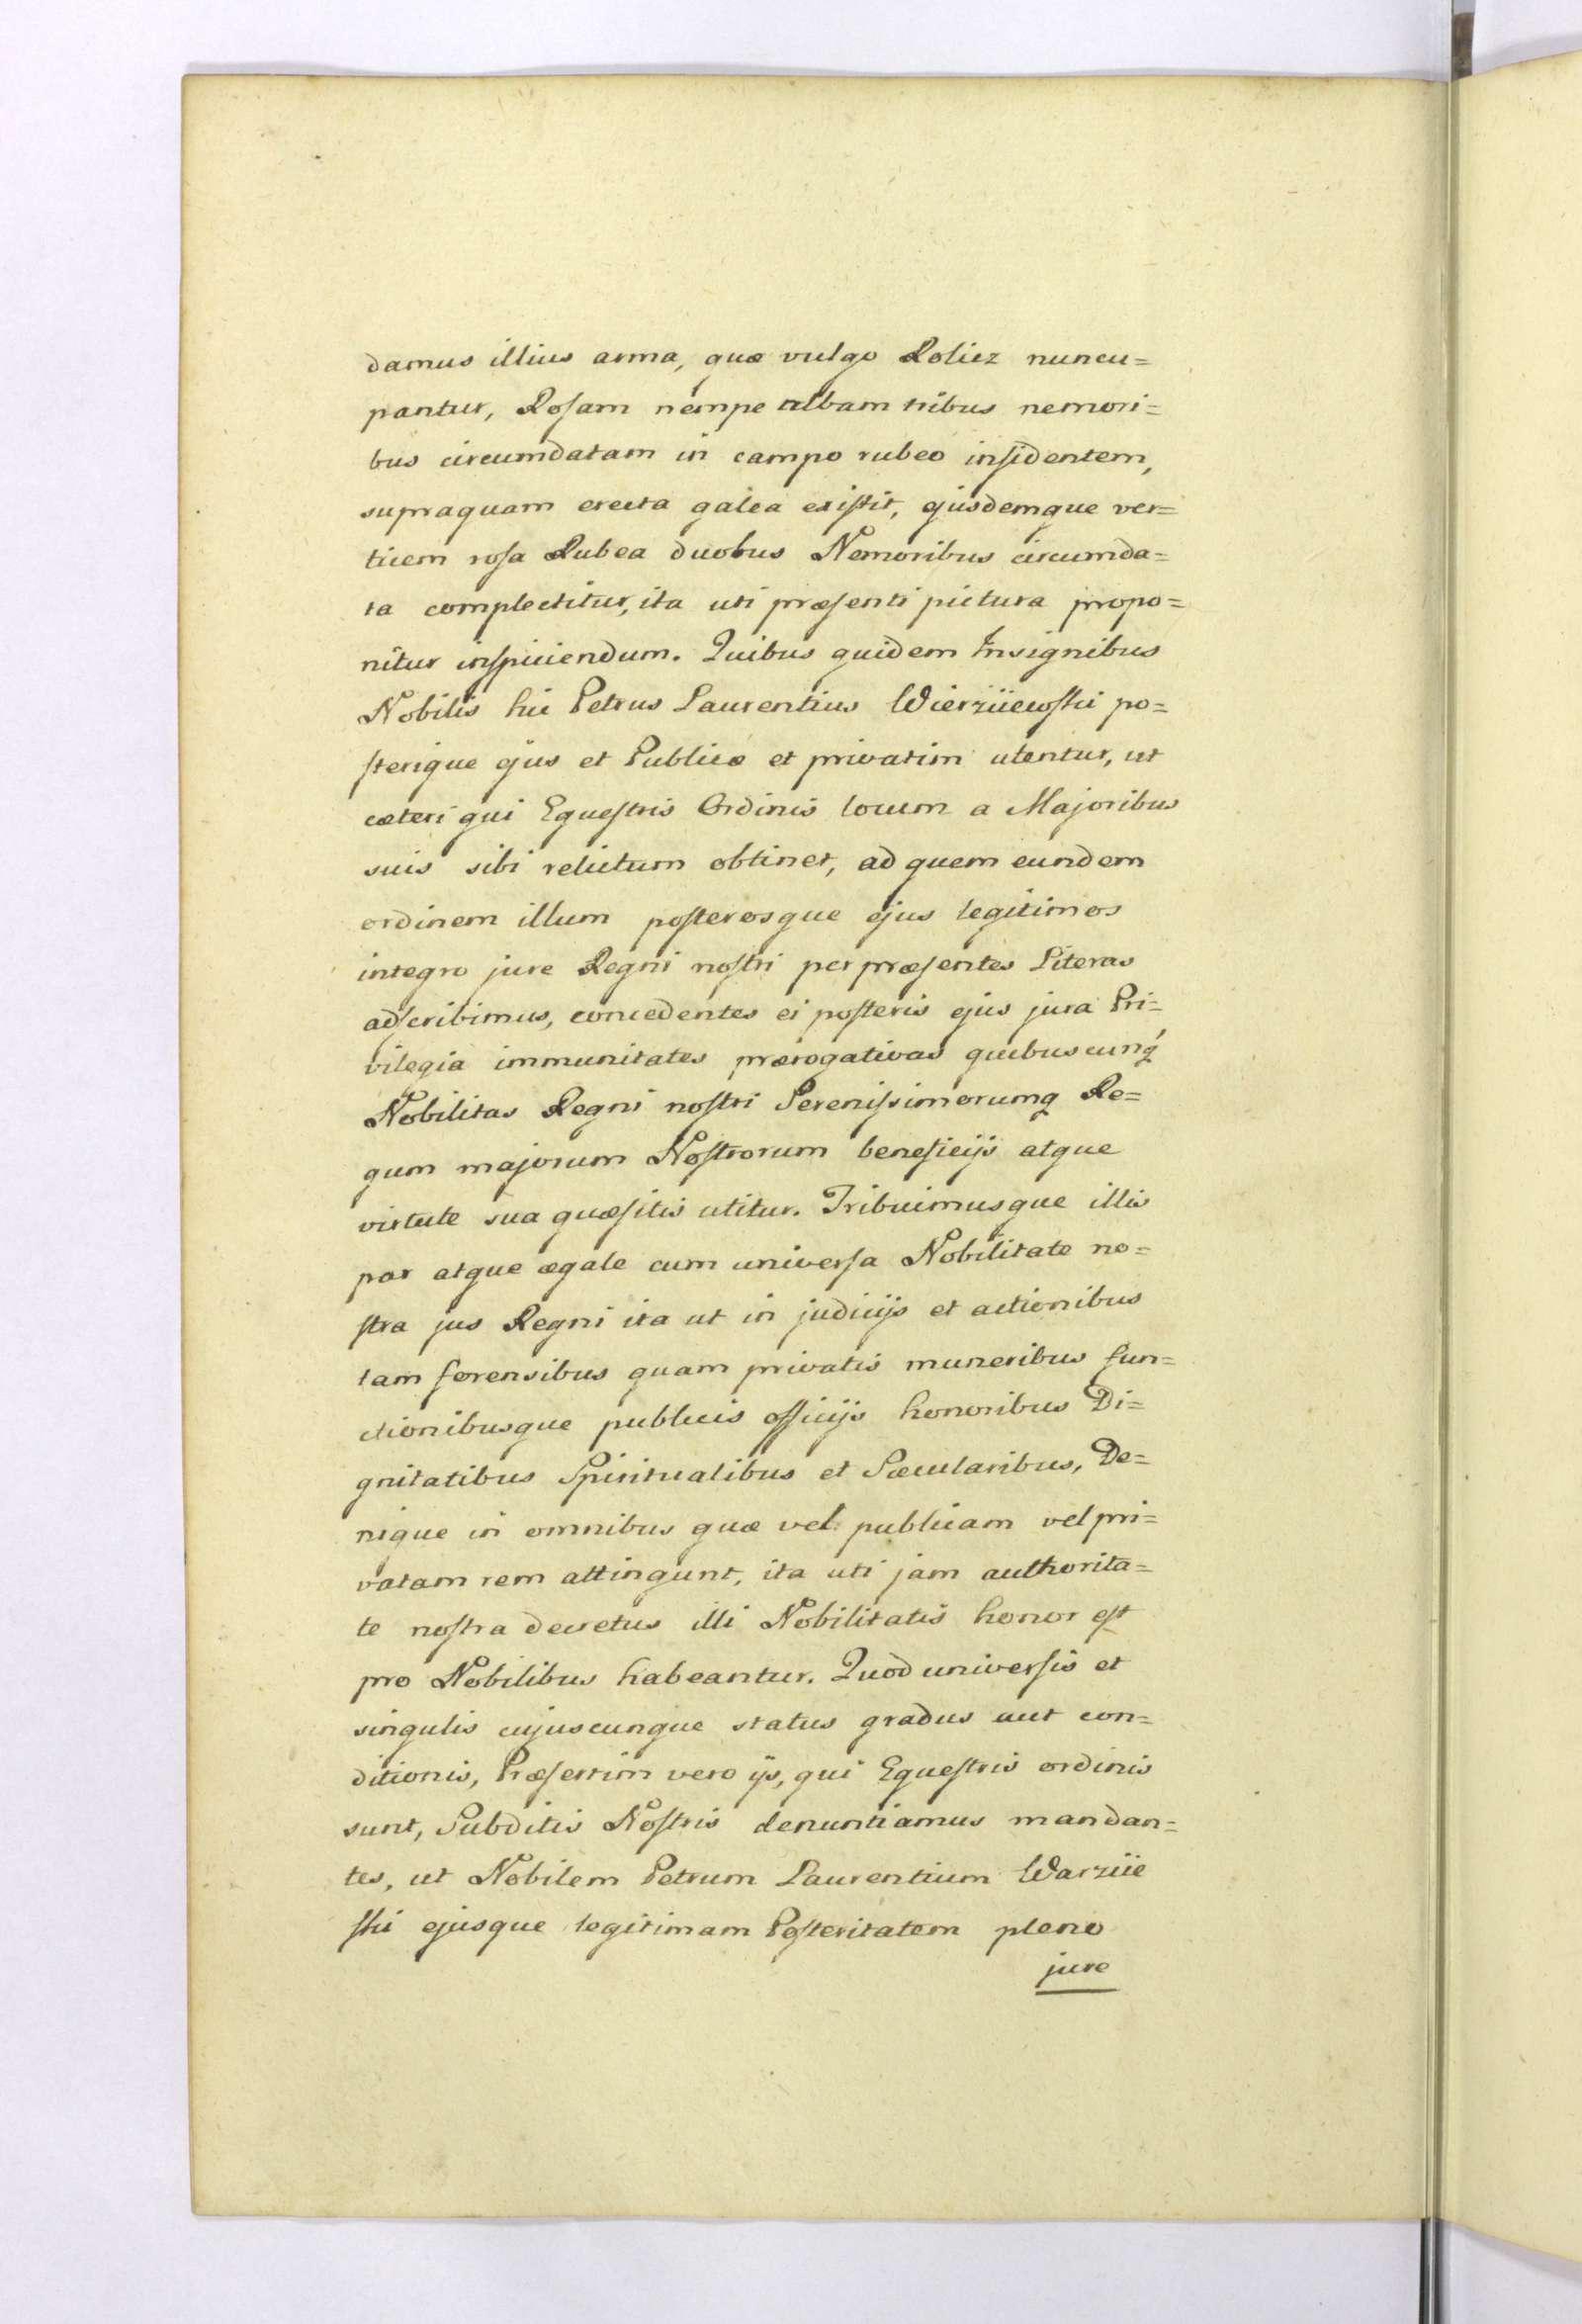 damus illius arma, quæ vulgo Roliez nuncu=
pantur, Rosam nempe albam tribus nemori=
bus circumdatam in campo rubeo insidentem,
supraquam erecta galea existit, ejusdemque ver=
ticem rosa Rubea duobus Nemoribus circumda=
ta complectitur, ita uti præsenti pictura propo=
nitur inspiciendum. Quibus quidem Insignibus
Nobilis hic Petrus Laurentius Wierziiewski po=
sterique ejus et Publice et privatim utentur, ut
cæteri qui Equestris Ordinis locum a Majoribus
suis sibi relictum obtinet, ad quem eundem
ordinem illum posterosque ejus legitimos
integro jure Regni nostri per præsentes Literas
adscribimus, concedentes ei posteris ejus jura Pri=
vilegia immunitates prærogativas quibuscunq́
Nobilitas Regni nostri Serenissimorumq Re=
gum majorum Nostrorum beneficijs atque
virtute sua quæsitis utitur. Tribuimusque illis
par atque æqale cum universa Nobilitate no=
stra jus Regni ita ut in judicijs et actionibus
tam forensibus quam privatis muneribus fun=
ctionibusque publicis officijs honoribus Di=
gnitatibus Spiritualibus et Sæcularibus, De=
nique in omnibus quæ vel publicam vel pri=
vatam rem attingunt, ita uti jam authorita=
te nostra decretus illi Nobilitatis honor est
pro Nobilibus habeantur. Quod universis et
singulis cujuscunque status gradus aut con=
ditionis, Præsertim vero ijs, qui Equestris ordinis
sunt, Subditis Nostris denuntiamus mandan=
tes, ut Nobilem Petrum Laurentium Warziie
ski ejusque legitimam Posteritatem pleno
jure